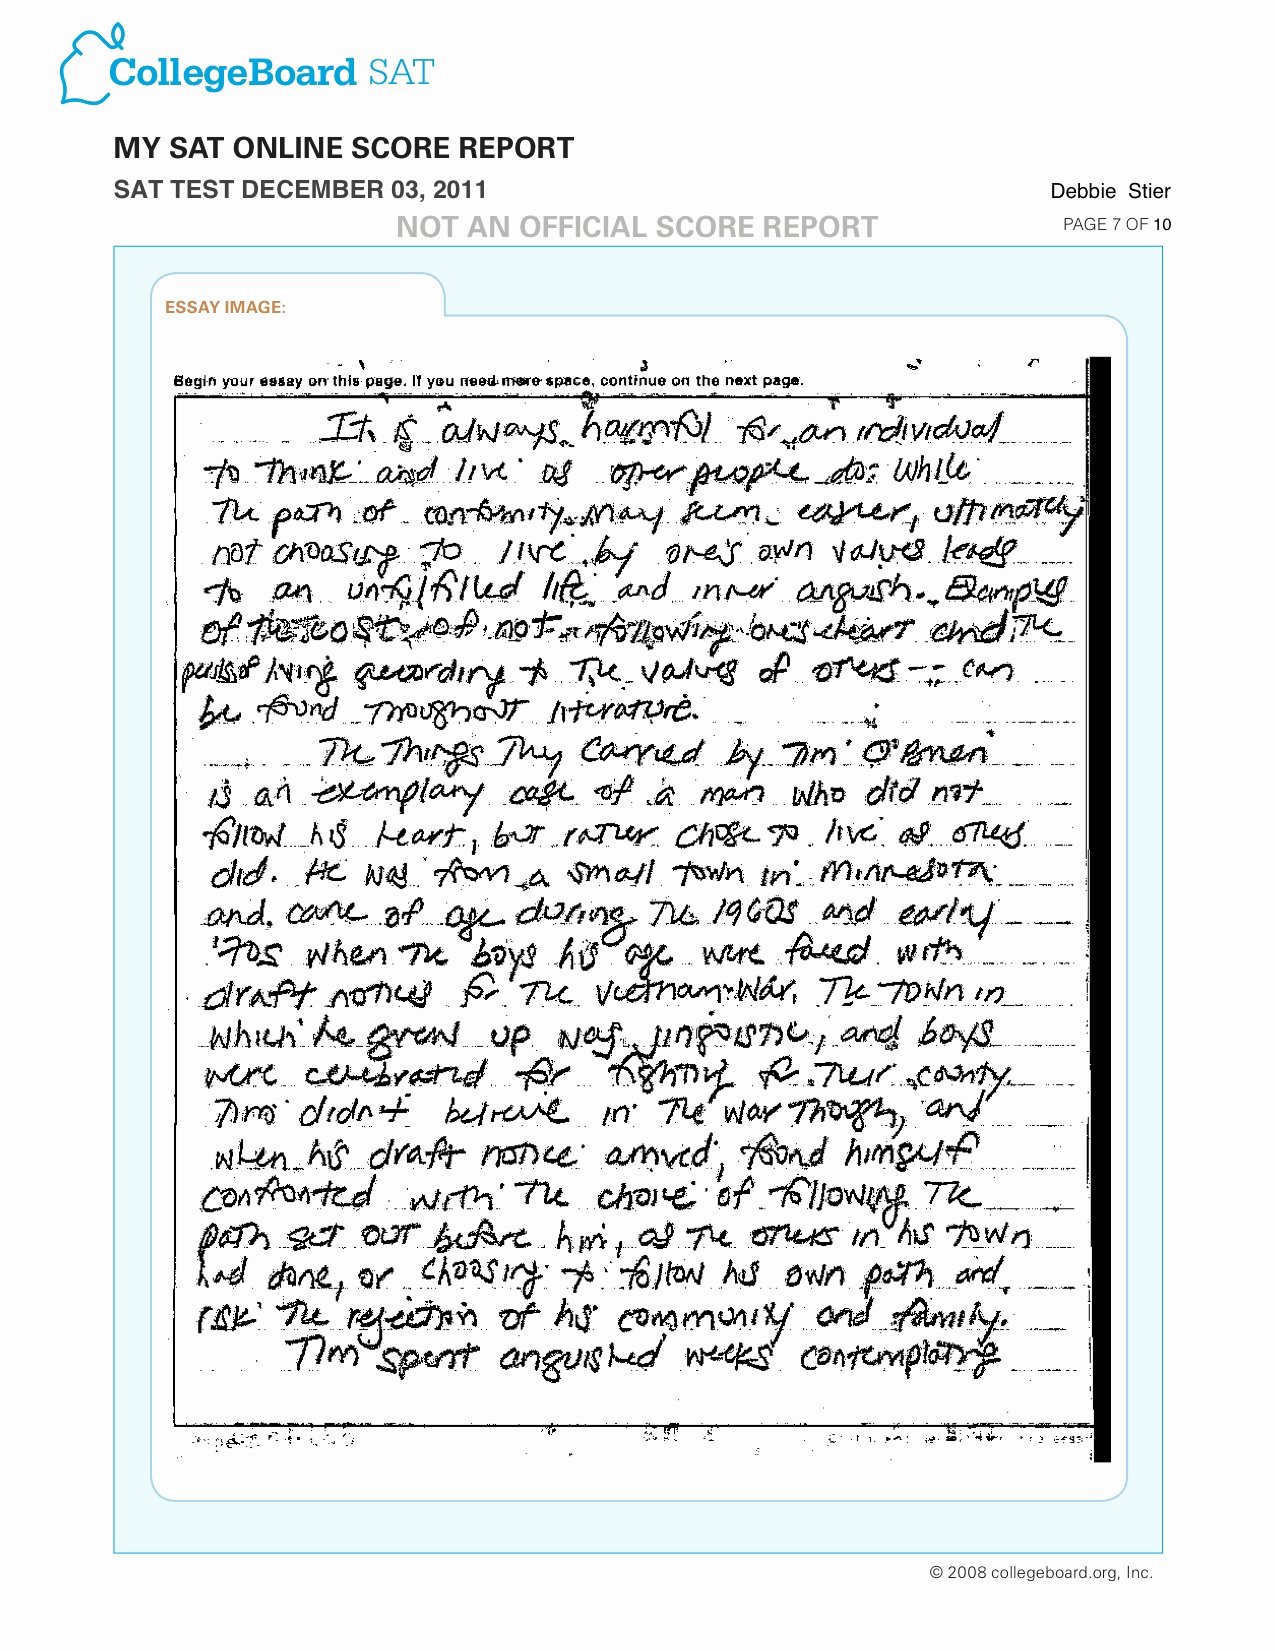 CollegeBoard SAT
MY SAT ONLINE SCORE REPORT
SAT TEST DECEMBER 03, 2011
Debbie Stier
NOT AN OFFICIAL SCORE REPORT
PAGE 7 OF 10
ESSAY IMAGE:
Begin your essay on this page. If you need more space, continue on the next page.
It is always harmful for an individual
to think and live as other people do. While
the path of conformity may seem easier, ultimately
not choosing to live by one's own values leads
to an unfulfilled life and inner anguish. Examples
of the cost of not following one's heart and the
perils of living according to the values of others -- can
be found throughout literature.
The Things They Carried by Tim O'Brien
is an exemplary case of a man who did not
follow his heart, but rather chose to live as others
did. He was from a small town in Minnesota
and came of age during the 1960s and early
'70s when the boys his age were faced with
draft notices for the Vietnam War. The town in
which he grew up was jingoistic, and boys
were celebrated for fighting for their county.
Tim didn't believe in the war though, and
when his draft notice arrived, found himself
confronted with the choice of following the
path set out before him, as the others in his town
had done, or choosing to follow his own path and
risk the rejection of his community and family.
Tim spent anguished weeks contemplating
© 2008 collegeboard.org, Inc.